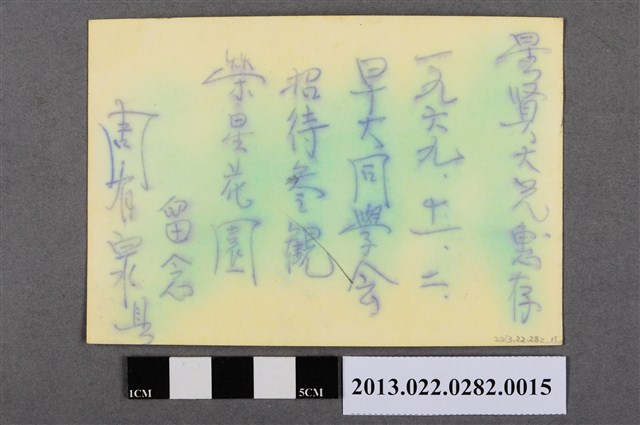 景賢大兄惠存
一九六九.十一.二.
早大同學会
招待參観
榮星花園
留念
周有泉具
2213.22.282.15
1CM
5CM
2013.022.0282.0015